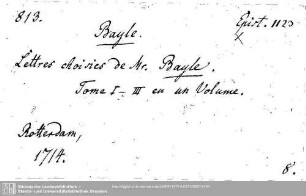 813.
Epist. 1123
Bayle.
Lettres choisies de Mr. Bayle.
Tome I - III en un Volume.
Rotterdam,
1714.
8.
Sächsische Landesbibliothek -
Staats- und Universitätsbibliothek Dresden